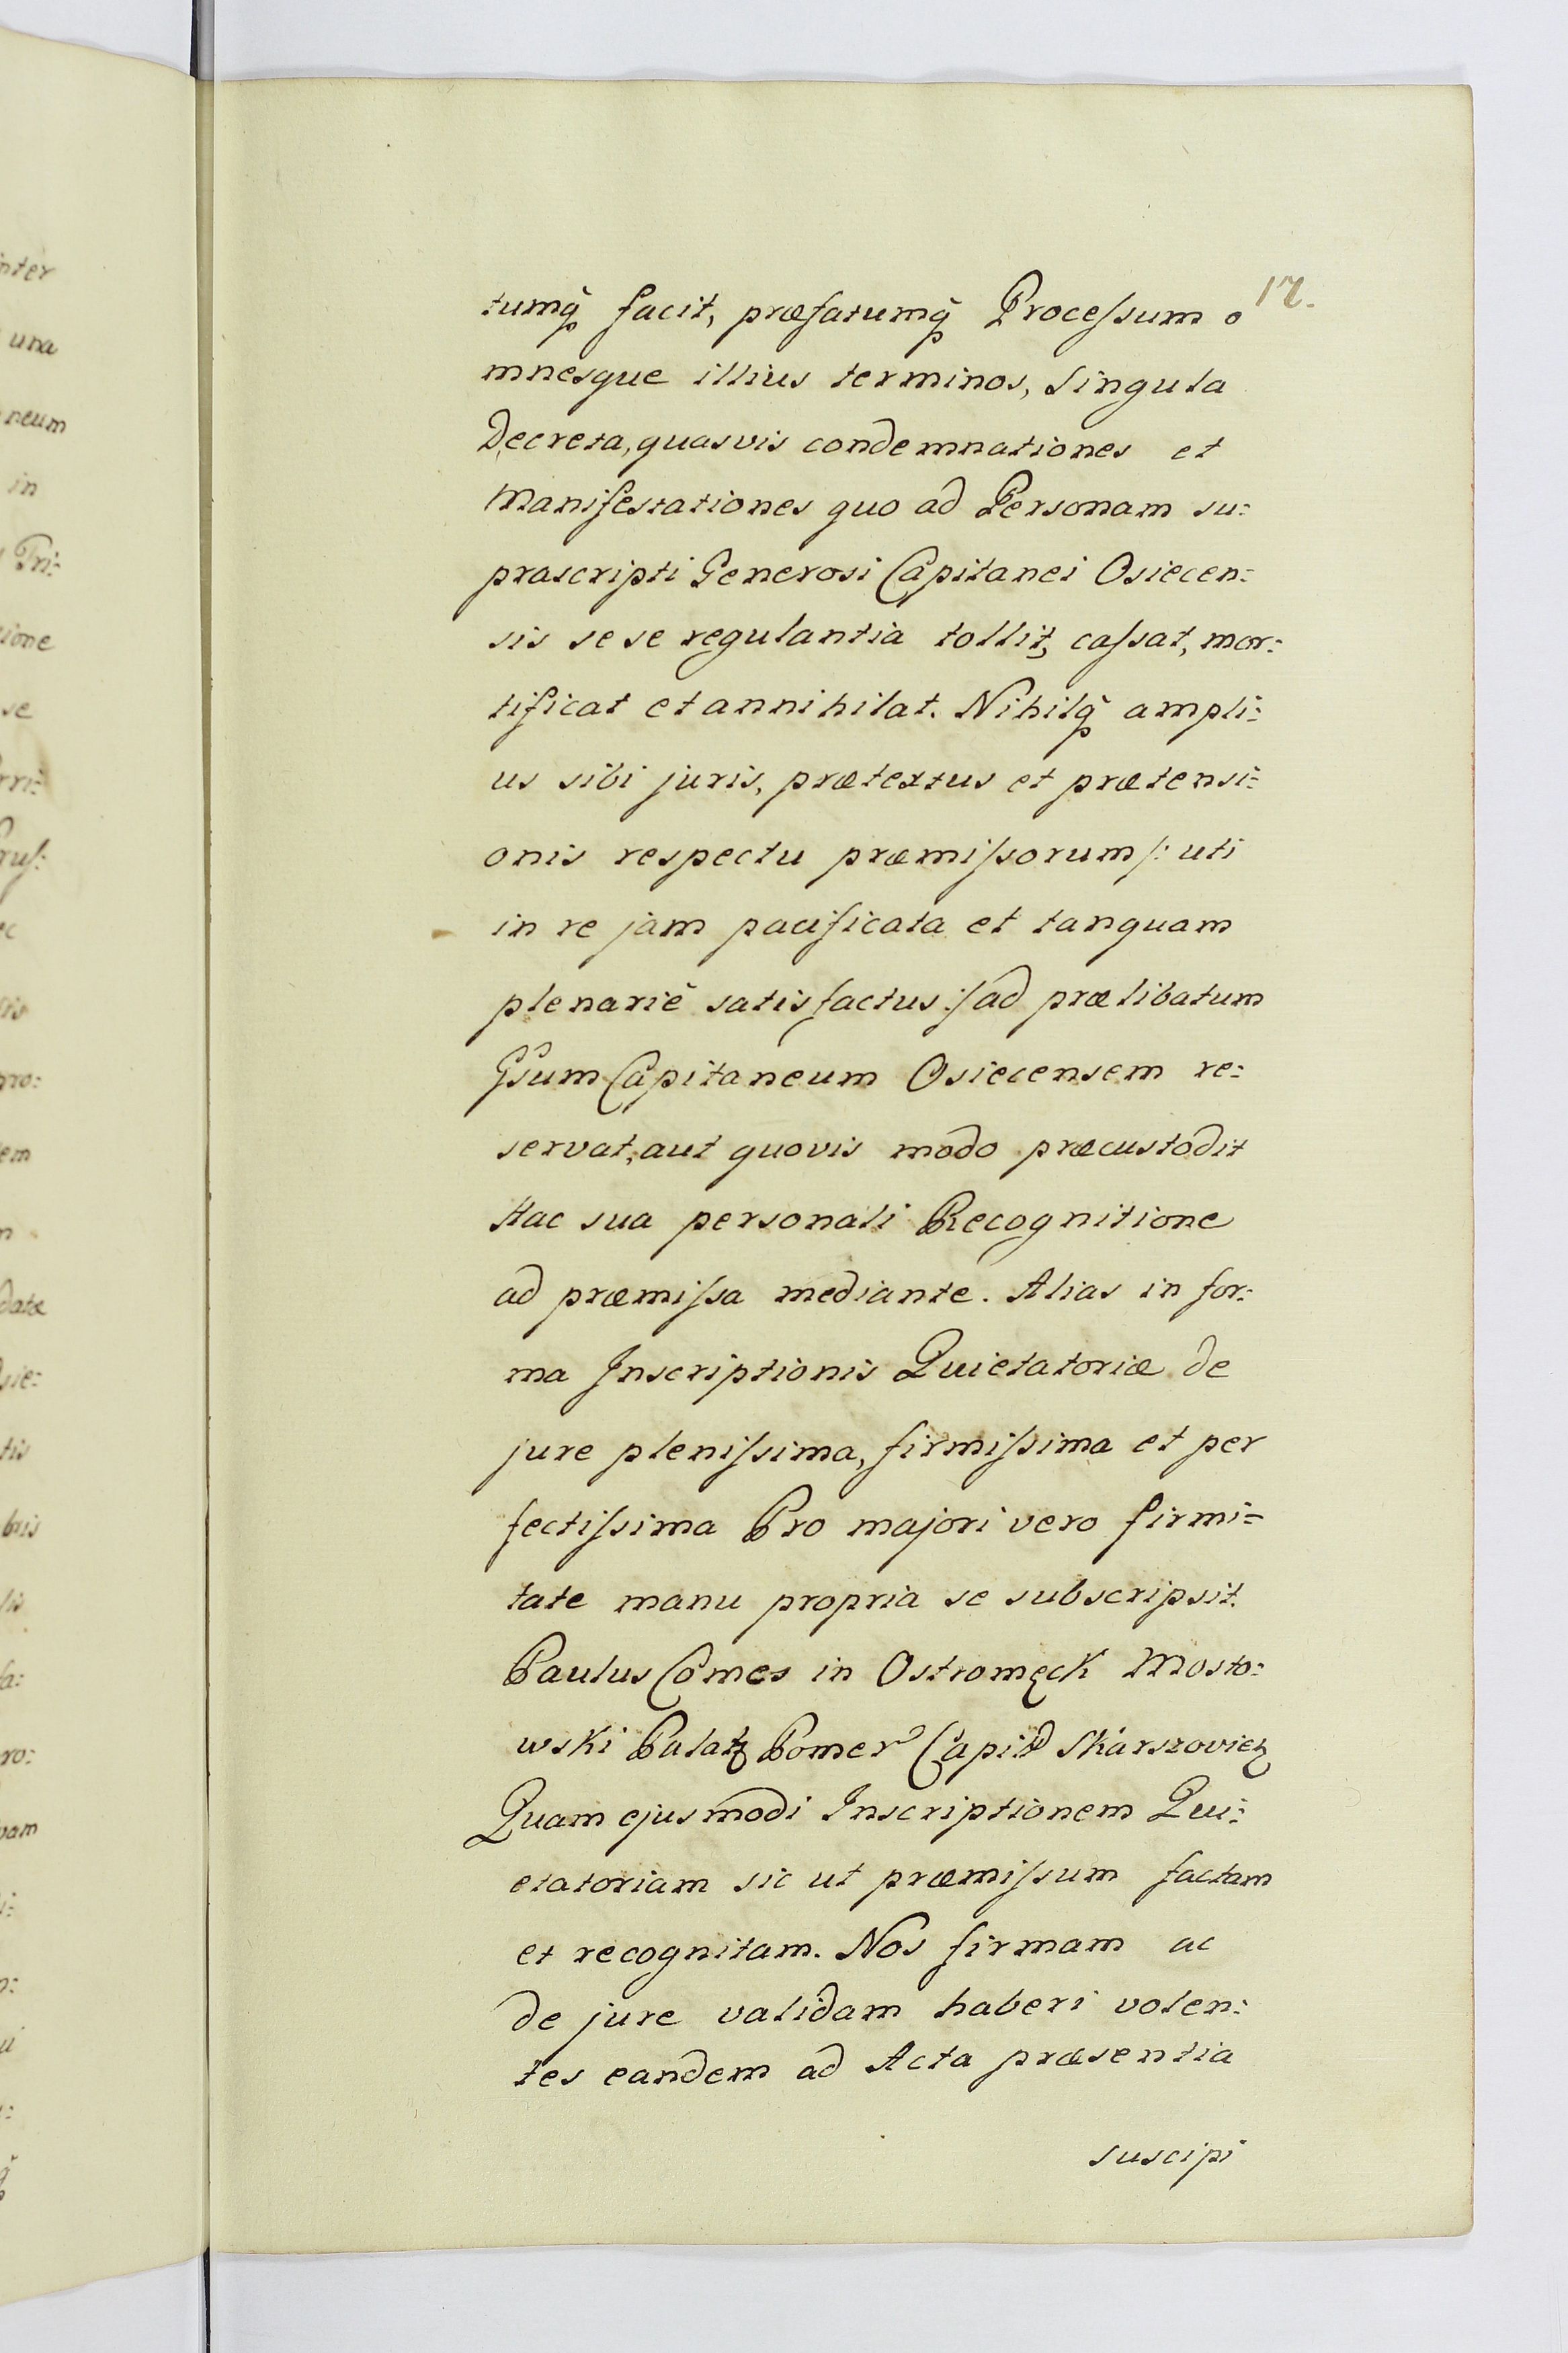 12.
tumq̃ facit, præfatumq̃ Proceſsum o
mnesque illius terminos, Singula
Decreta, quasvis condemnationes et
Manifestationes quo ad Personam su:
prascripti Generosi Capitanei Osiecen:
sis sese regulantia tollit, caſsat, mor:
tificat et annihilat. Nihilq̃ ampli:
us sibi juris, prætextus et prætensi:
onis respectu præmiſsorum /: uti
in re jam pacificata et tanquam
plenariè satisfactus :/ ad prælibatum
Gsum Capitaneum Osiecensem re:
servat, aut quovis modo præcustodit
Hac sua personali Recognitione
ad præmiſsa mediante. Alias in for:
ma Inscriptionis Quietatoriæ de
jure pleniſsima, firmiſsima et per
fectiſsima Pro majori vero firmi=
tate manu propria se subscripsit.
Paulus Comes in Ostromęck Mosto:
wski Palat Pomer Capit Skarszovien
Quam ejusmodi Inscriptionem Qui:
etatoriam sic ut præmiſsum factam
et recognitam. Nos firmam ac
de jure validam haberi volen:
tes eandem ad Acta præsentia
suscipi
nter
una
neum
in
Tri:
ione
se
ec
pro:
em
datæ
sie:
tis
ro: